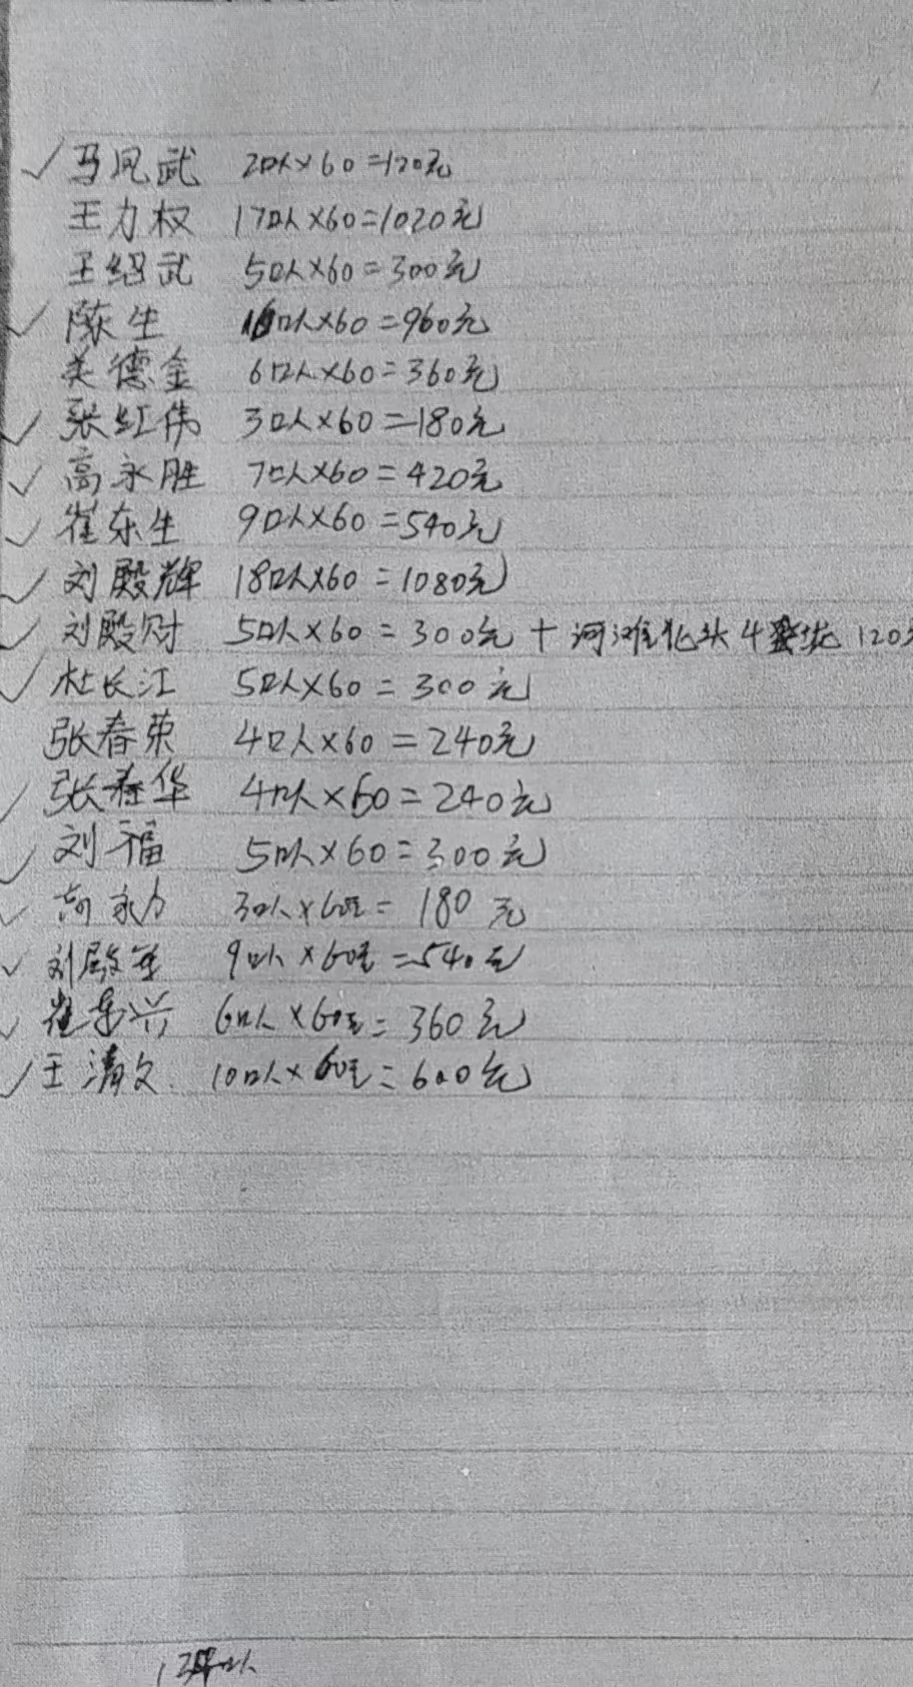 ✓马凤武 2口人×60=120元
王力权 17口人×60=1020元
王绍武 5口人×60=300元
✓陈生 16口人×60=960元
美德金 6口人×60=360元
✓张红伟 3口人×60=180元
✓高永胜 7口人×60=420元
✓崔东生 9口人×60=540元
✓刘殿辉 18口人×60=1080元
✓刘殿财 5口人×60=300元+河滩北头4垄 120元
✓杜长江 5口人×60=300元
张春荣 4口人×60=240元
✓张春华 4口人×60=240元
✓刘福 5口人×60=300元
✓高永 3口人×60元=180元
✓刘殿军 9口人×60元=540元
✓崔东兴 6口人×60元=360元
✓王清文 10口人×60元=600元